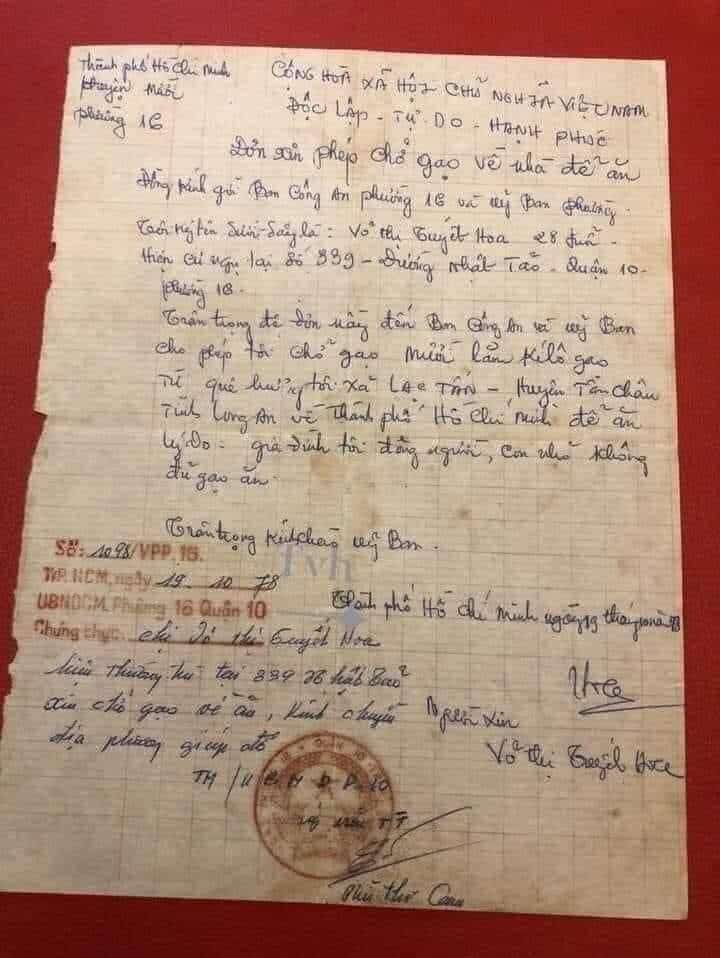 Thành phố Hồ Chí Minh
Mười
phường 16
CỘNG HOÀ XÃ HỘI CHỦ NGHĨA VIỆT NAM
ĐỘC LẬP - TỰ - DO - HẠNH PHÚC
Đơn xin phép chở gạo về nhà để ăn
Đồng kính gởi Ban Công An phường 16 và uỷ Ban phường.
Tôi ký tên dưới đây là: Võ thị Tuyết Hoa 28 tuổi.
Hiện cư ngụ tại Số 339 - Đường Nhật Tảo - Quận 10 -
phường 16.
Trân trọng đệ đơn nầy đến Ban Công An và uỷ Ban
cho phép tôi chở gạo mười lăm kílô gạo
Từ quê hương tôi xã LẠC TẤN - Huyện Tân Châu
Tỉnh Long An về Thành phố Hồ Chí Minh để ăn
Lý do - gia đình tôi đông người, con nhỏ không
đủ gạo ăn.
Trân trọng kính chào uỷ Ban.
Tvh
Số: 1098/VPP.16.
TP. HCM, ngày 19. 10 78
UBNDCM. Phường 16 Quận 10
Chứng thực: chị Võ thị Tuyết Hoa
hiện thường trú tại 339 Nhật Tảo
xin chở gạo về ăn, kính chuyển
địa phương giúp đỡ
Thành phố Hồ Chí Minh ngày 19 tháng 10 năm 78
Hoa
Người xin
Võ thị Tuyết Hoa
TM/UBND P.